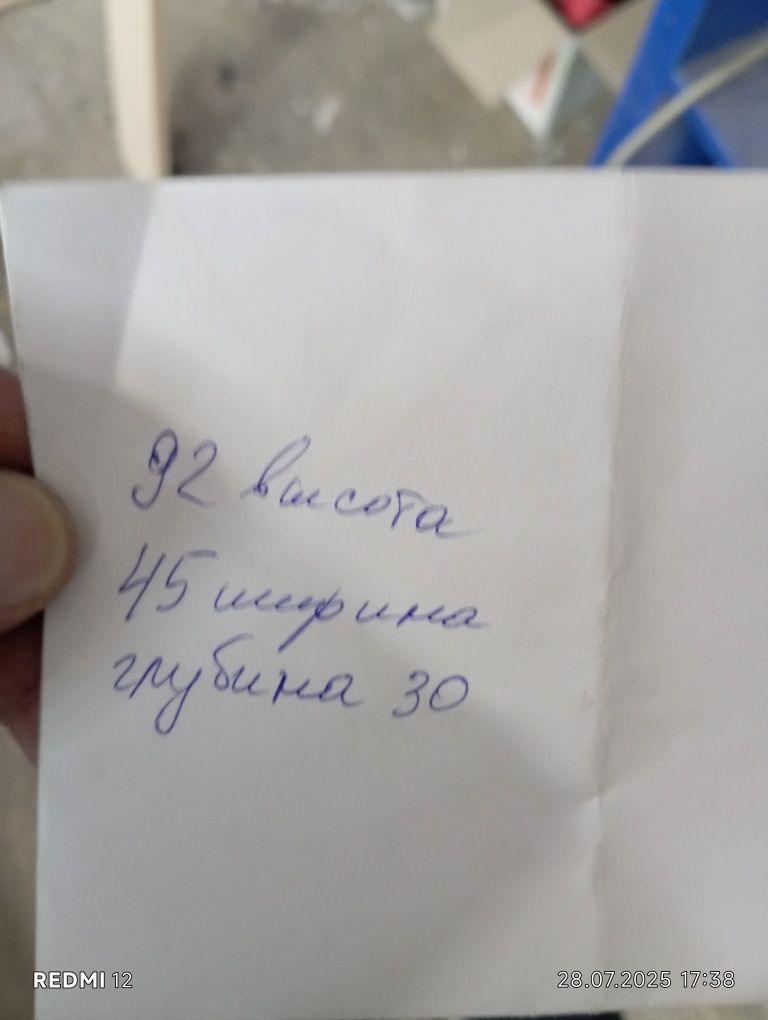 92 высота
45 ширина
глубина 30
REDMI 12
28.07.2025 17:38